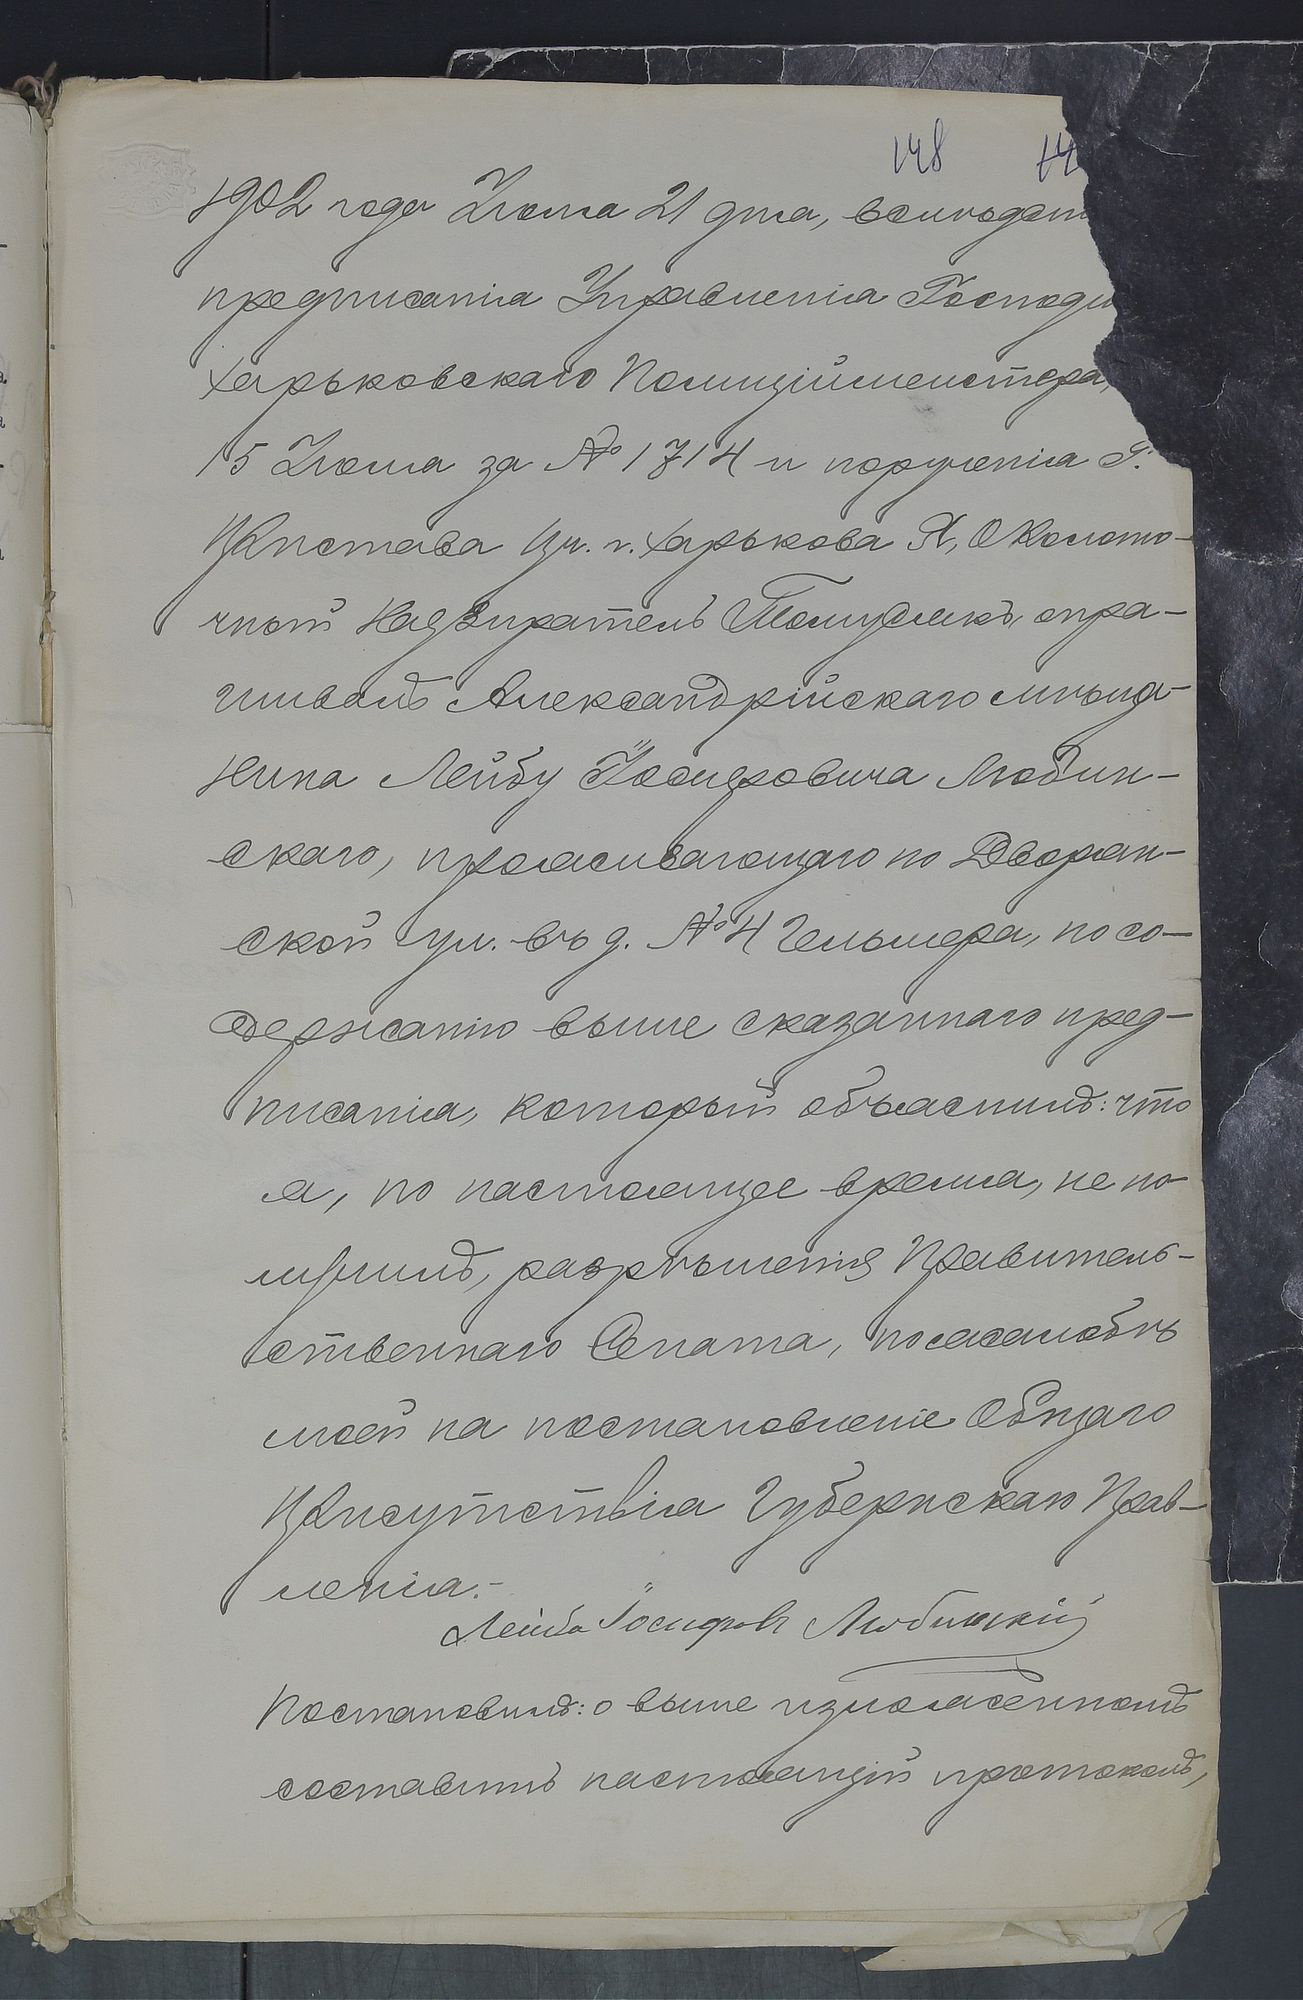 148 14
1902 года Июля 21 дня, вслѣдст
предписанія Управленія Господи
Харьковскаго Полиціймейстера,
15 Июля за № 1714 и порученія Г.
Пристава 1 уч. г. Харькова Я, Околото-
чный Надзиратель опра-
шивалъ Александрійскаго мѣща-
нина Лейбу Іосифовича Любин-
скаго, проживающаго по Дворян-
ской ул. въ д. № 4 Гельмера, по со-
держанію выше сказаннаго пред-
писанія, который объяснилъ: что
я, по настоящее время, не по-
лучилъ, разрѣшенія Правитель-
ственнаго Сената, по жалобѣ
моей на постановленіе Общаго
Присутствія Губернскаго Прав-
ленія.-
Лейба Іосифовъ Любинскій
Постановилъ: о выше изложенномъ
составить настоящій протоколъ,